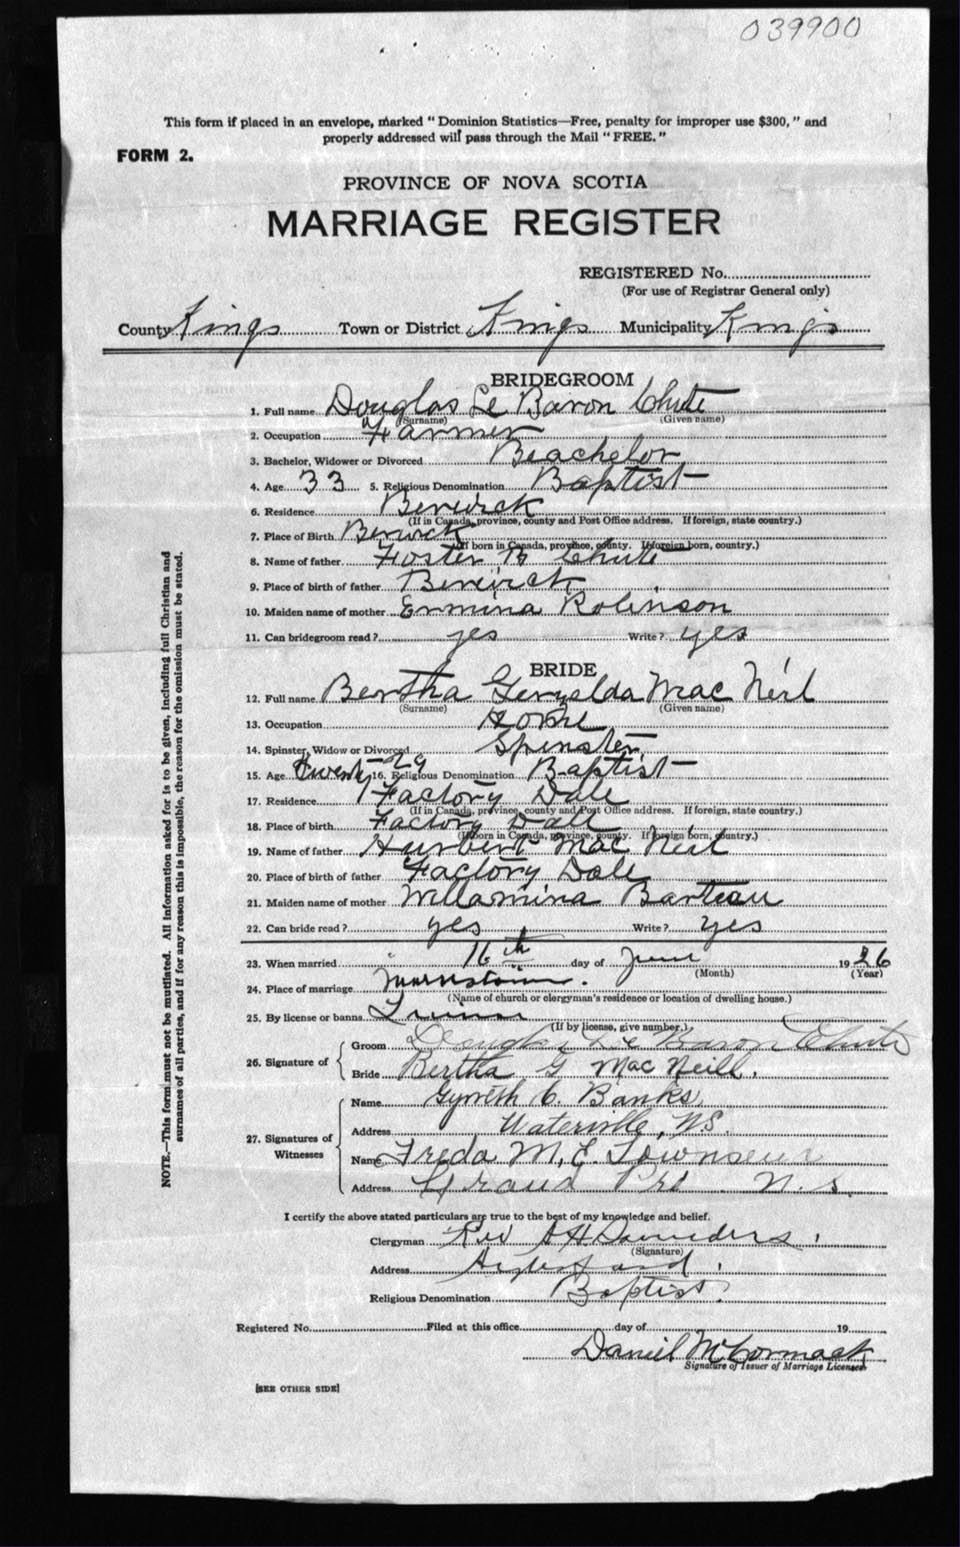 039900
This form if placed in an envelope, marked "Dominion Statistics—Free, penalty for improper use $300," and
properly addressed will pass through the Mail "FREE."
FORM 2.
PROVINCE OF NOVA SCOTIA
MARRIAGE REGISTER
REGISTERED No.
(For use of Registrar General only)
County Kings Town or District Kings Municipality Kings
BRIDEGROOM
1. Full name Douglas Le Baron Chute
(Surname) (Given name)
2. Occupation Farmer
3. Bachelor, Widower or Divorced Beachelor
4. Age 33 5. Religious Denomination Baptist
6. Residence Berwick
(If in Canada, province, county and Post Office address. If foreign, state country.)
7. Place of Birth Berwick
(If born in Canada, province, county. If foreign born, country.)
8. Name of father Foster B Chute
9. Place of birth of father Berwick
10. Maiden name of mother Ermina Robinson
11. Can bridegroom read? yes Write? yes
BRIDE
12. Full name Bertha Mac Neil
(Surname) (Given name)
13. Occupation Home
14. Spinster, Widow or Divorced Spinster
15. Age twenty 29 16. Religious Denomination Baptist
17. Residence Factory Dale
(If in Canada, province, county and Post Office address. If foreign, state country.)
18. Place of birth Factory Dale
(If born in Canada, province, county. If foreign born, country.)
19. Name of father Hurbert Mac Neil
20. Place of birth of father Factory Dale
21. Maiden name of mother Willamina Barteau
22. Can bride read? yes Write? yes
23. When married 16th day of June 1926
(Month) (Year)
24. Place of marriage Morristown.
(Name of church or clergyman's residence or location of dwelling house.)
25. By license or banns
(If by license, give number.)
26. Signature of
Groom Douglas Le Baron Chute
Bride Bertha G MacNeill.
27. Signatures of Witnesses
Name C. Banks
Address Waterville, N.S.
Name Freda M. E. Townsend
Address Grand Pré N.S.
I certify the above stated particulars are true to the best of my knowledge and belief.
Clergyman Rev A H Saunders
(Signature)
Address
Religious Denomination Baptist.
Registered No. Filed at this office day of 19
Daniel McCormack
Signature of Issuer of Marriage Licenses
[SEE OTHER SIDE]
NOTE.—This form must not be mutilated. All information asked for is to be given, including full Christian and
surnames of all parties, and if for any reason this is impossible, the reason for the omission must be stated.